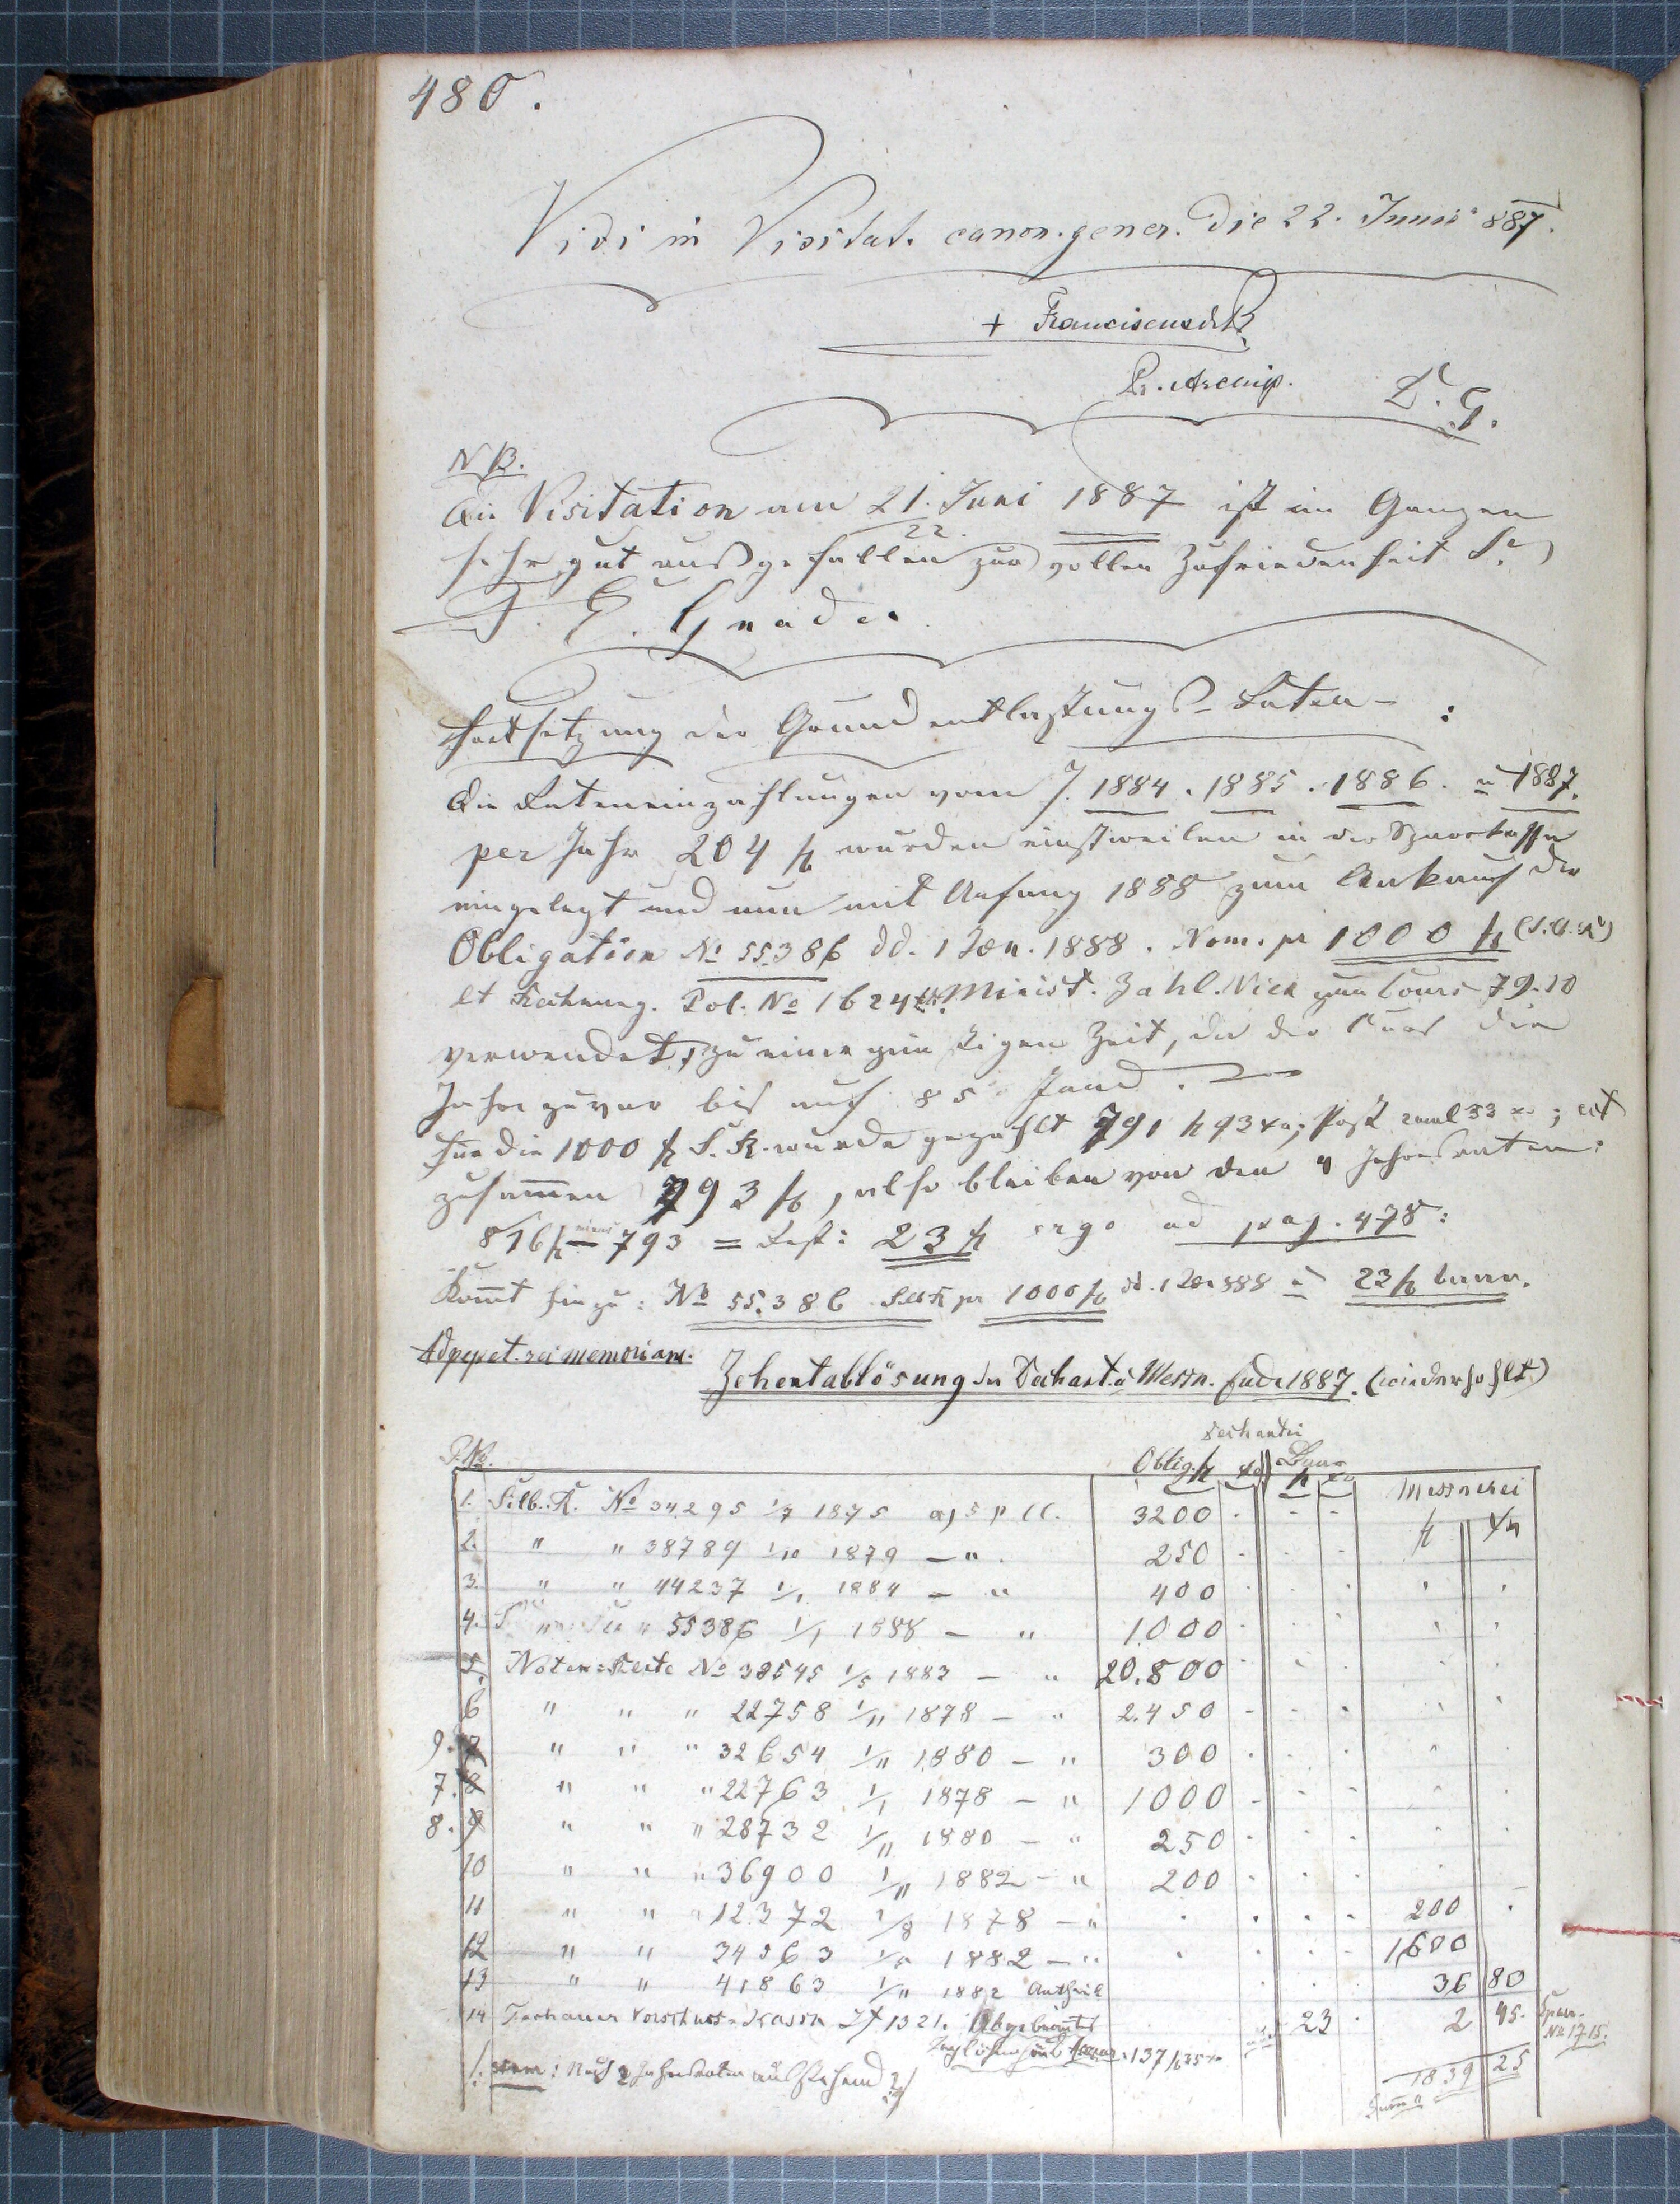 480.
Vidi in Visitat. canon. gener. die 22. Junii 887.
+ Franciscus de P.
Pr. Archiep.
L. G.
NB.
Die Visitation am 21. Juni 1887 ist im Ganzen
22.
sehr gut ausgefallen zur vollen Zufriedenheit Sr
F. E. Gnaden
Fortsetzung der Grundentlastungs-Raten:
Die Rateneinzahlungen vom J. 1884. 1885. 1886. u 1887.
per Jahr 204 fl wurden einstweilen in der Sparkasse
eingelegt und nun mit Anfang 1888 zum Ankauf der
Obligation No 55.386 dd. 1 Jän. 1888. Nom. pr 1000 fl
lt Rechnung. Pol. No 1624 Minist. Zahl. Wien zum Cours 79.10
verwendet, zu einer günstigen Zeit, da der Kurs die
Jahre zuvor bis auf 85 stand.
Für die 1000 fl S. R. wurde gezahlt 791 fl 93 xr; Post 33 xr;
zusammen 793 fl, also bleiben von den 4 Jahresraten:
816 fl minus – 793 = Rest: 23 fl ergo ad pag. 478:
Kommt hinzu: No 55.386 Silb R pr 1000 fl dd. 1 Jän 888 u 23 fl baar.
Ad perpet. rei memoriam.
Zehentablösung der Dechant. u Messn. Ende 1887. (wiederhohlt)
P. No.
Dechantei
Oblig. fl xr Baar fl xr Messnerei
fl xr
1. Silb. R. No 34.295 1/7 1875 a) 5 p CC. 3200
2. " " 38789 1/10 1879 – " 250
3. " " 44237 1/1 1884 – " 400
4. " 55386 1/1 1888 – " 1000
5. Noten-Rente No 38545 1/5 1883 – " 20.800
6 " " " 22758 1/11 1878 – " 2.450
9. 7 " " " 32654 1/11 1880 – " 300
7. 8 " " " 22763 1/1 1878 – " 1000
8. 9 " " " 28732 1/11 1880 – " 250
10 " " " 36900 1/11 1882 – " 200
11 " " " 12.372 1/8 1878 – " 200
12 " " 34963 1882 – " 1,600
13 " " 41863 1/11 1882 Antheil 36 80
14 Vorschuss-Kassa 1321. 23 2 45. Spar. No 1715.
137 fl 35 xr
Noch 2 Jahresraten ausstehend
Summa 1839 25